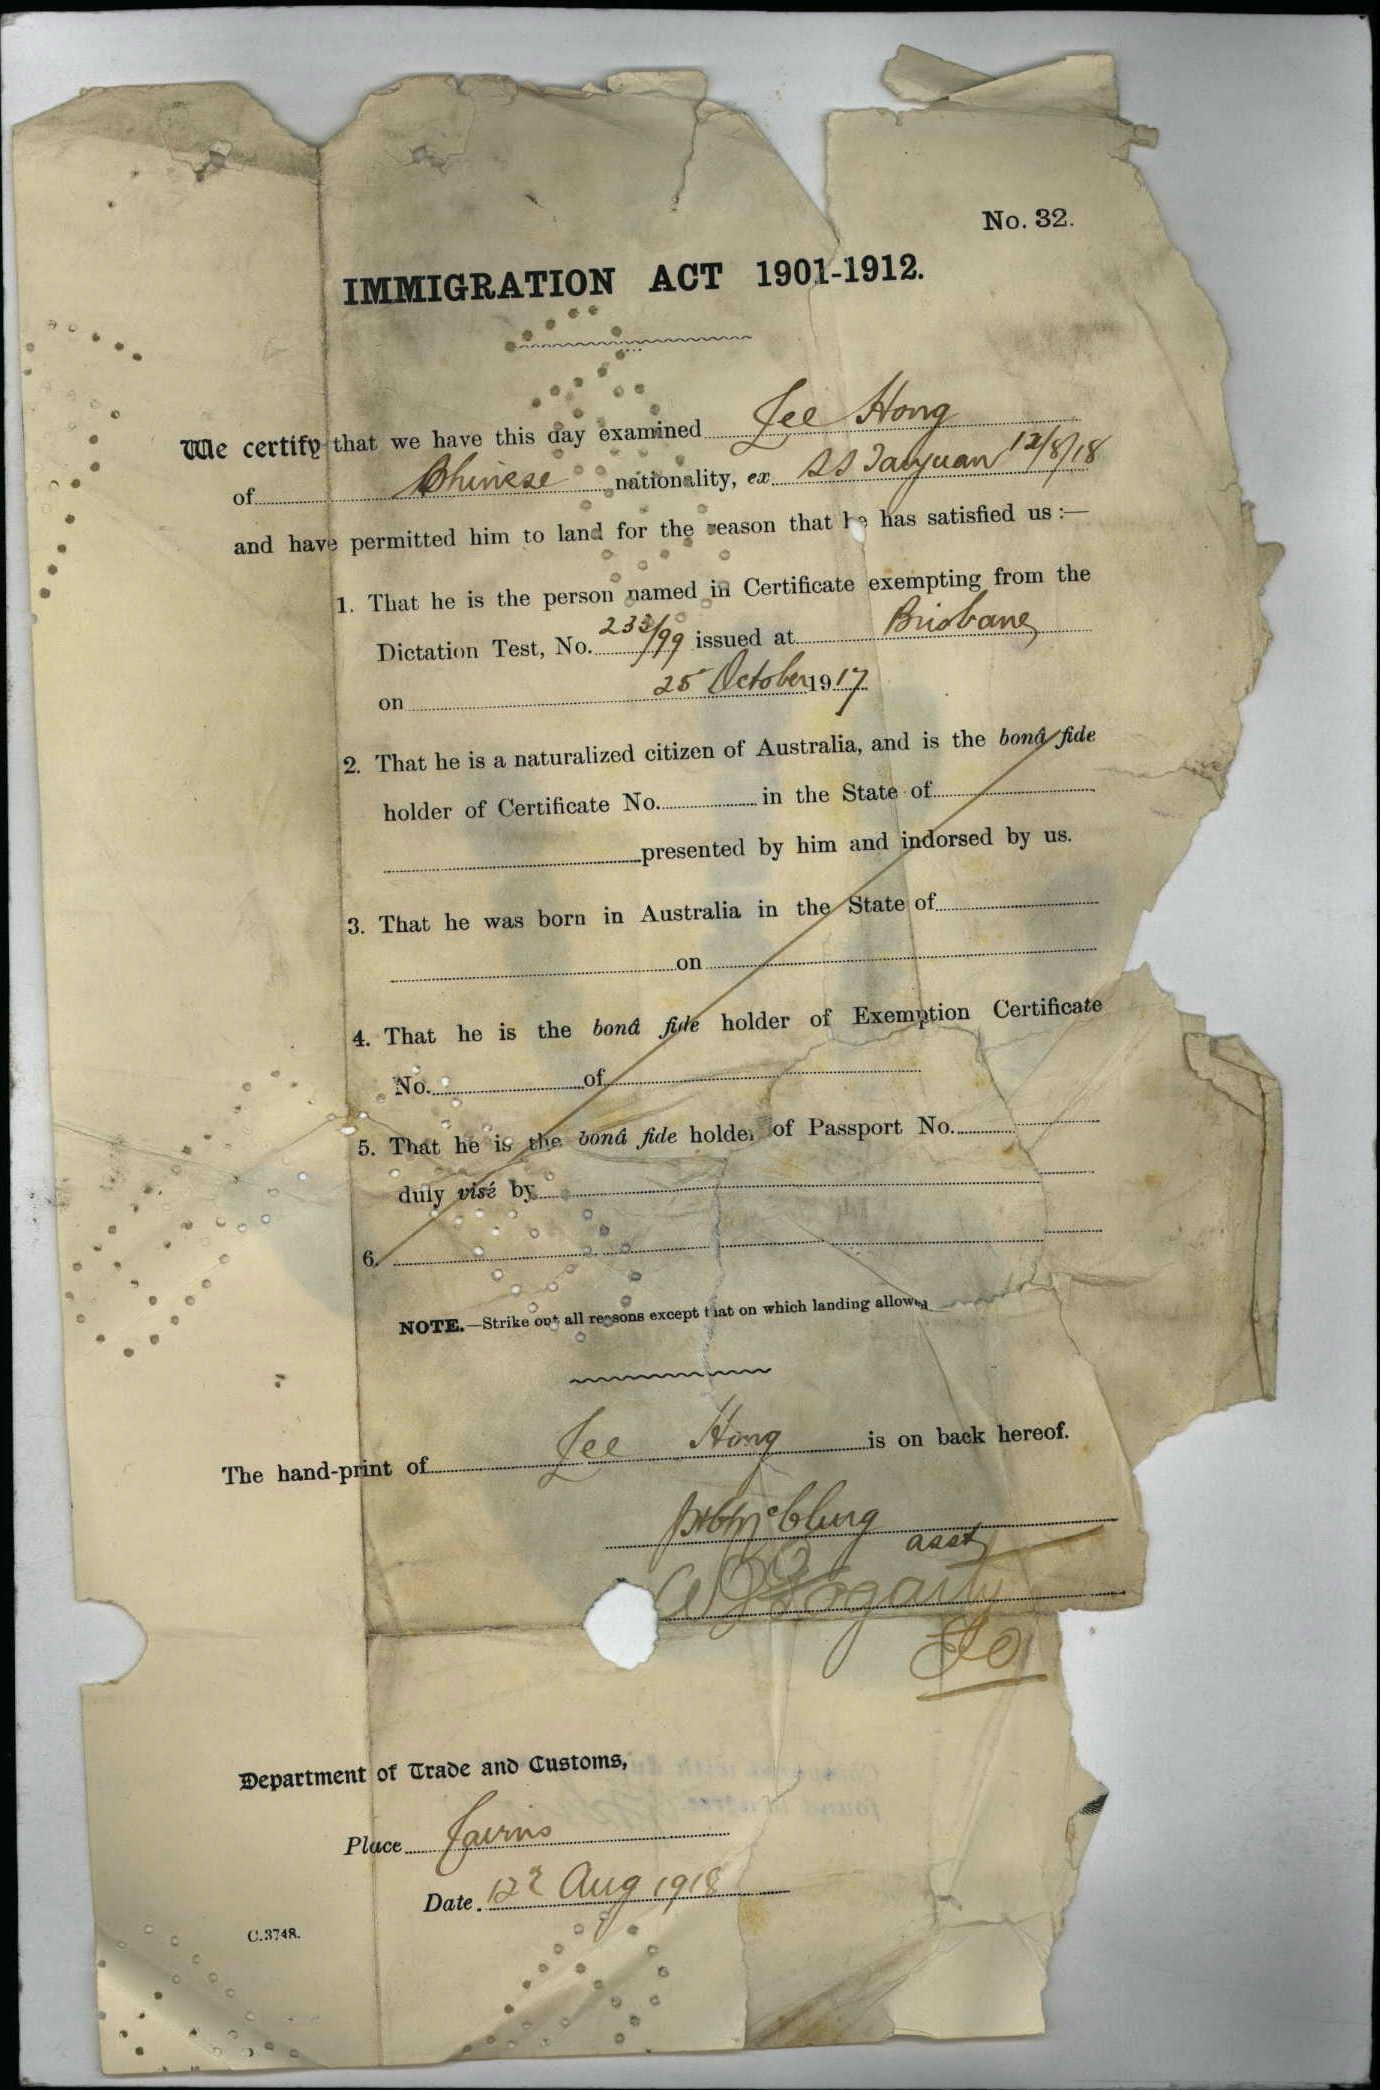 No. 32.
IMMIGRATION ACT 1901-1912.
We certify that we have this day examined Lee Hong
of Chinese nationality, ex SS Taiyuan 12/8/18
and have permitted him to land for the reason that he has satisfied us :—
1. That he is the person named in Certificate exempting from the
Dictation Test, No. 233/99 issued at Brisbane
on 25 October 1917
2. That he is a naturalized citizen of Australia, and is the bonâ fide
holder of Certificate No. in the State of
presented by him and indorsed by us.
3. That he was born in Australia in the State of
on
4. That he is the bonâ fide holder of Exemption Certificate
No. of
5. That he is the bonâ fide holder of Passport No.
duly visé by
6.
NOTE.—Strike out all reasons except that on which landing allowed
The hand-print of Lee Hong is on back hereof.
McClurg
asst
Fogarty
Department of Trade and Customs,
Place Cairns
Date. 12 Aug 1918
C.3748.